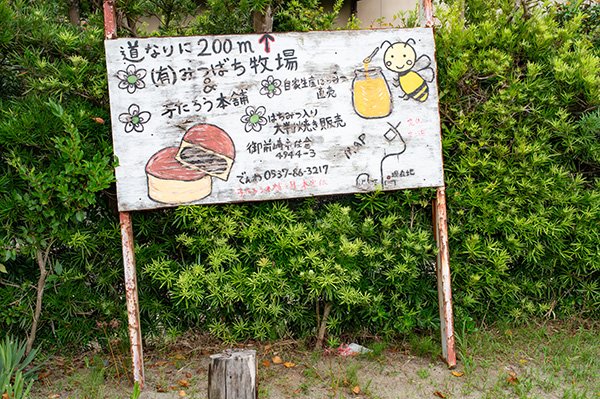 道なりに200m↑
(有)みつばち牧場
&
本舗
自家生産はちみつ
直売
はちみつ入り
大判焼き販売
御前崎市
4944-3
でんわ0537-86-3217
MAP
現在地